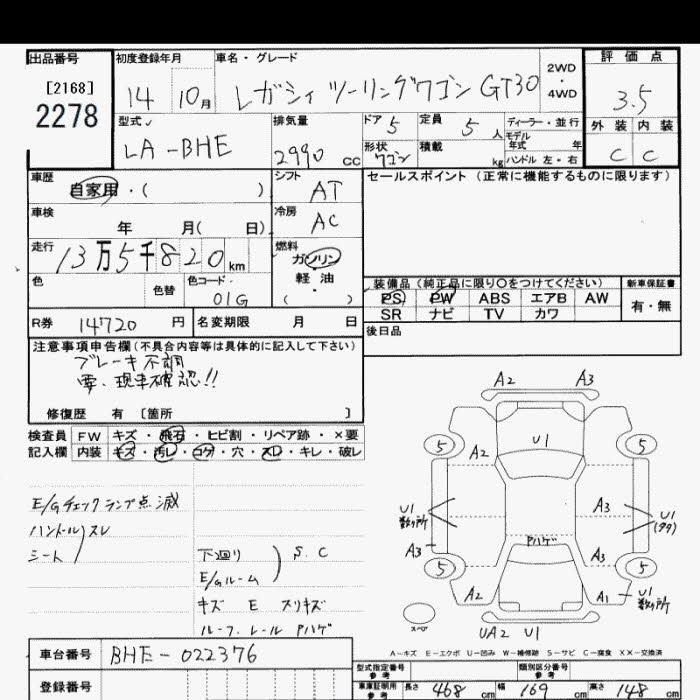 出品番号 初度登録年月 車名・グレード 2WD・4WD 評価点
[2168]
2278
14 10月 レガシィ ツーリングワゴン GT30
3.5
型式 LA-BHE 排気量 2990 cc
ドア 5 定員 5 人 ディーラー・並行
モデル年式 年
形状 ワゴン 積載 kg ハンドル 左・右
外装 内装
C C
車歴 自家用・( )
シフト AT
セールスポイント (正常に機能するものに限ります)
車検 年 月( 日)
冷房 AC
走行 13万5千820km
燃料 ガソリン・軽油
( )
色 色替 色コード 01G
装備品 (純正品に限り○をつけてください) 新車保証書
PS PW ABS エアB AW 有・無
SR ナビ TV カワ
R券 14720 円 名変期限 月 日
後日品
注意事項申告欄(不具合内容等は具体的に記入して下さい)
ブレーキ不調
要、現車確認!!
修復歴 有 [箇所 ]
検査員 FW キズ・飛石・ヒビ割・リペア跡・×要
記入欄 内装 キズ・汚レ・コゲ・穴・スレ・キレ・破レ
E/Gチェックランプ点滅
ハンドルスレ
シート
下回り
E/Gルーム
S.C
キズ E スリキズ
ルーフレール Pハゲ
A2 A3
U1
5 5
A2
U1
数ヶ所
A3
U1
(多)
Pハゲ
A3 A3
5 5
A2 A1 U1
数ヶ所
スペア
UA2 U1
A-キズ E-エクボ U-凹み W-補修跡 S-サビ C-腐食 XX-交換済
車台番号 BHE-022376
型式指定番号 参考 類別区分番号 参考
登録番号
車庫証明用 参考 長さ 468 cm 幅 169 cm 高さ 148 cm